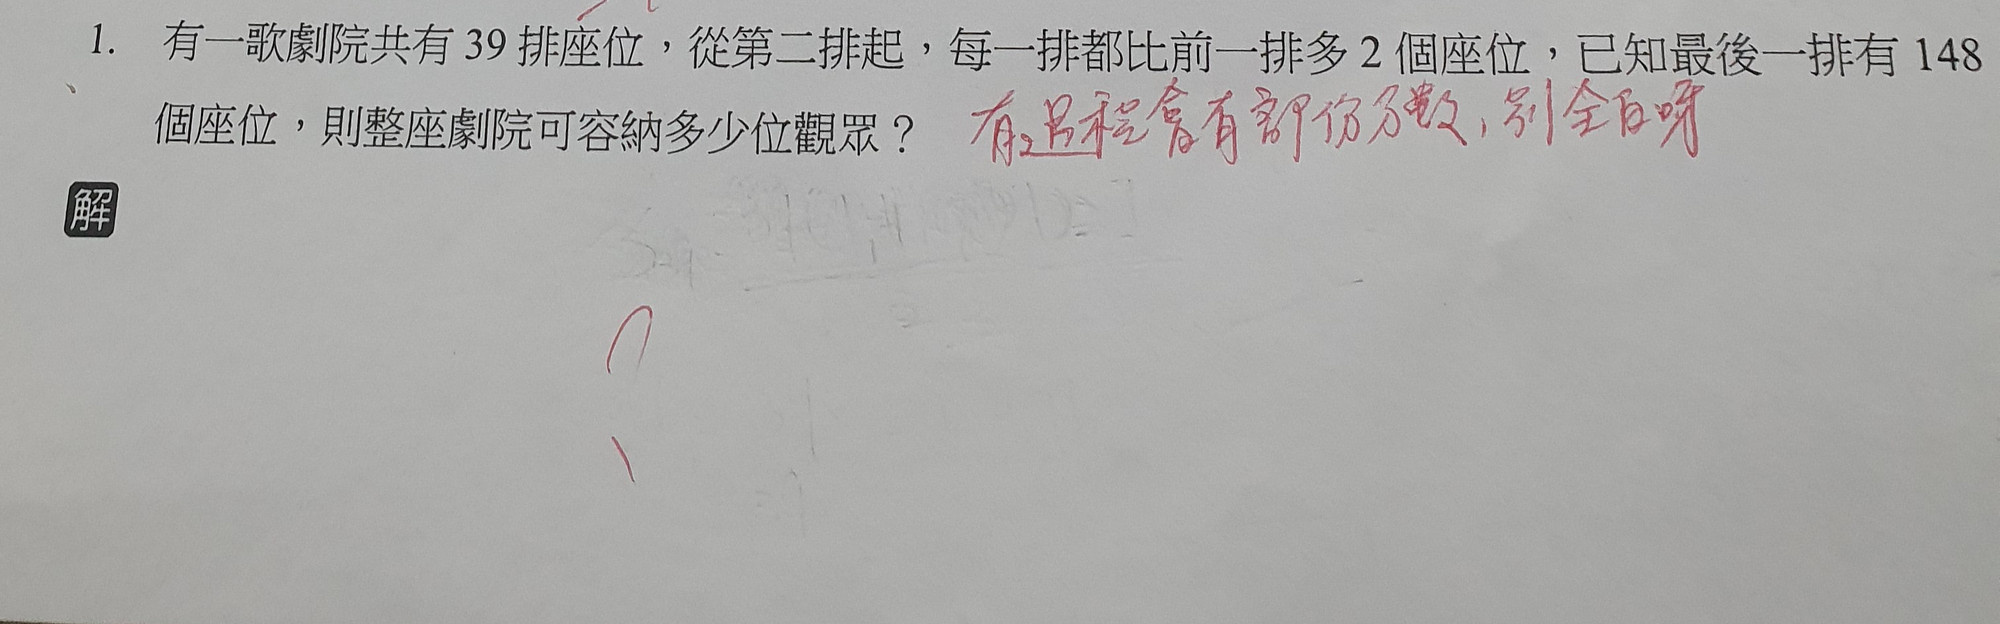 1. 有一歌劇院共有 39 排座位，從第二排起，每一排都比前一排多 2 個座位，已知最後一排有 148
個座位，則整座劇院可容納多少位觀眾？ 有過程會有部份分數，別全白呀
解
?